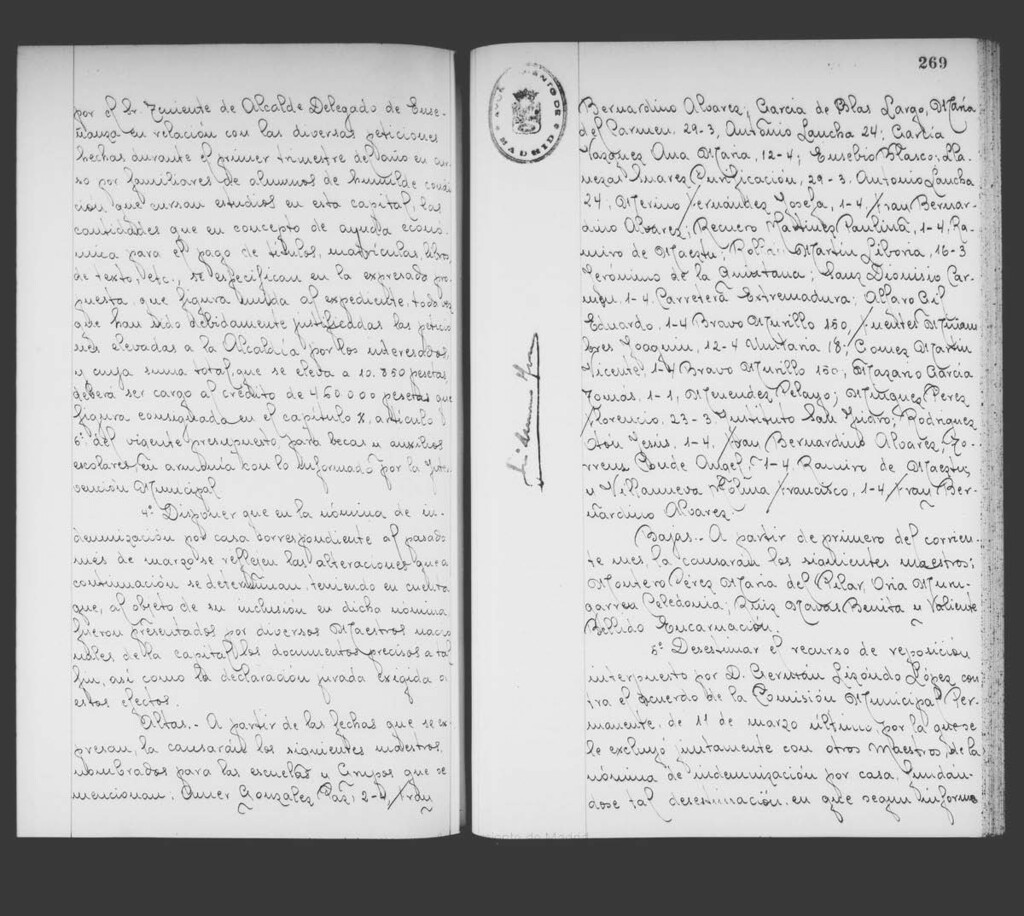 por el Sr Teniente de Alcalde Delegado de Ense-
ñanza en relación con las diversas peticiones
hechas durante el primer trimestre del año en cur-
so por familiares de alumnos de humilde condi
ción que cursan estudios en esta capital, las
cantidades que en concepto de ayuda econó-
mica para el pago de títulos, matrículas, libros
de texto, etc., se especifican en la expresada pro-
puesta que figura unida al expediente, toda vez
que han sido debidamente justificadas las peticio
nes elevadas a la Alcaldía por los interesados
y cuya suma total, que se eleva a 10.850 pesetas
deberá ser cargo al crédito de 450.000 pesetas que
figura consignada en el capítulo X, artículo
5º del vigente presupuesto para becas y auxilios
escolares, en armonía con lo informado por la Inter
vención Municipal
4º Disponer que en la nómina de in-
demnización por casa correspondiente al pasado
mes de marzo se reflejen las alteraciones que a
continuación se determinan, teniendo en cuenta
que, al objeto de su inclusión en dicha nómina
fueron presentados por diversos Maestros nacio
nales de la capital los documentos precisos a tal
fin, así como la declaración jurada exigida a
estos efectos.
Altas.- A partir de las fechas que se ex
presan, la causarán los siguientes maestros,
nombrados para las escuelas y Grupos que se
mencionan: González Paz, 2-4, Fray
269
AYUNTAMIENTO DE MADRID
Bernardino Alvarez; García de Blas Largo, María
del Carmen. 29-3, Antonio Lancha 24; García
Vázquez Ana María, 12-4; Eusebio Blasco; Lla-
nezas Suarez Purificación, 29-3. Antonio Lancha
24; Merino Fernández Josefa, 1-4, Fray Bernar-
dino Alvarez; Recuero Martínez Paulina, 1-4, Ra-
miro de Maeztu; Martín Liboria, 16-3
Jerónimo de la Quintana; Sanz Dionisio Car-
men, 1-4, Carretera Extremadura; Alfaro Gil
Eduardo, 1-4 Bravo Murillo 150; Fuentes Miñam
bres Joaquín, 12-4 Unitaria 18; Gomez Martín
Vicente, 1-4 Bravo Murillo 150; Mazano García
Tomás, 1-1, Menendez Pelayo; Mínguez Perez
Florencio, 23-3 Instituto San Isidro; Rodríguez
Jesús, 1-4, Fray Bernardino Alvarez; To-
rrens Conde Angel, 1-4 Ramiro de Maeztu
y Villanueva Molina Francisco, 1-4, Fray Ber-
nardino Alvarez
Bajas.- A partir de primero del corrien-
te mes, la causarán los siguientes maestros:
Montero Pérez María del Pilar, Oria Muni-
garren Celedonia; Ruiz Navas Benita y Valiente
Bellido Encarnación.
5º Desestimar el recurso de reposición
interpuesto por D. Germán Lizondo López con
tra el acuerdo de la Comisión Municipal Per-
manente, de 11 de marzo último, por la que se
le excluyó juntamente con otros Maestros, de la
nómina de indemnización por casa, fundán-
dose tal desestimación en que según informe